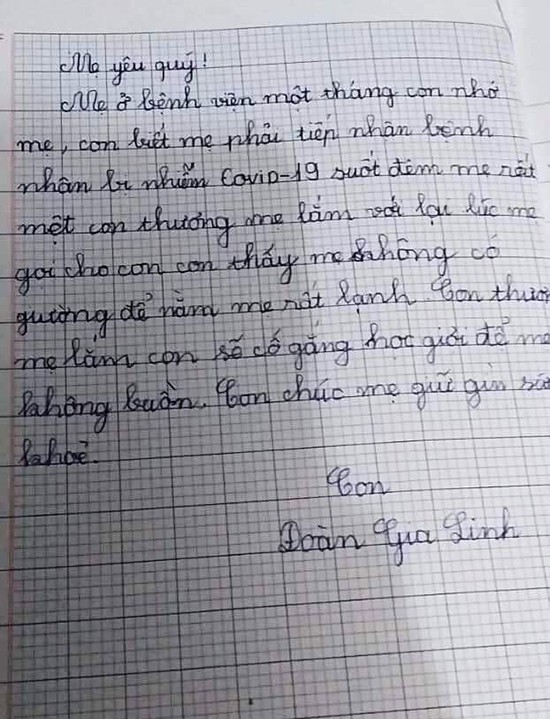 Mẹ yêu quý!
Mẹ ở bệnh viện một tháng con nhớ
mẹ, con biết mẹ phải tiếp nhận bệnh
nhân bị nhiễm Covid-19 suốt đêm mẹ rất
mệt con thương mẹ lắm với lại lúc mẹ
gọi cho con con thấy mẹ không có
gường để nằm mẹ rất lạnh. Con thươn
mẹ lắm con sẽ cố gắng học giỏi để mẹ
không buồn. Con chúc mẹ giữ gìn sức
khoẻ.
Con
Đoàn Gia Linh